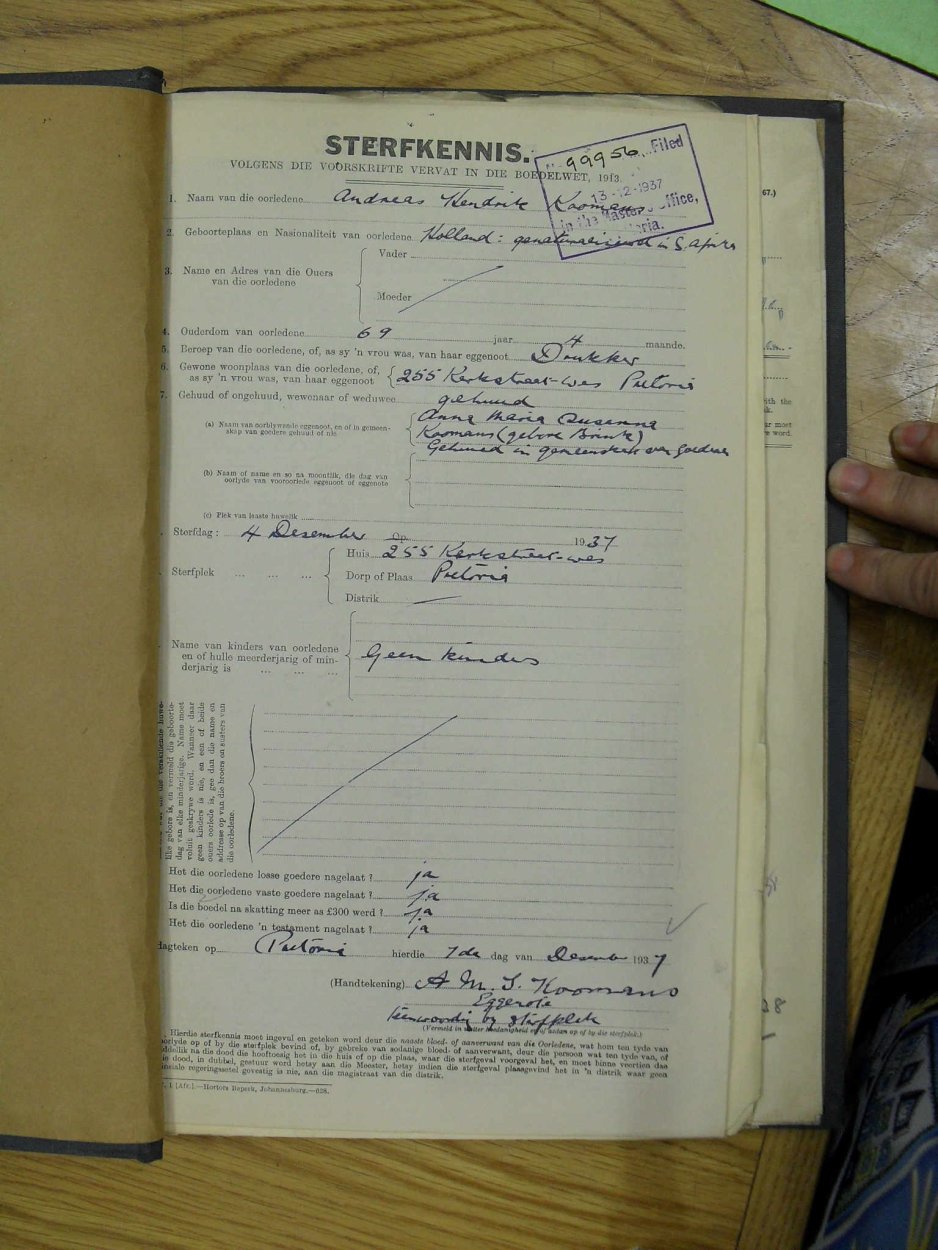 STERFKENNIS.
VOLGENS DIE VOORSKRIFTE VERVAT IN DIE BOEDELWET, 1913.
99956 Filed
13-12-1937
in the Master's Office,
1. Naam van die oorledene Andreas Hendrik Koomans
2. Geboorteplaas en Nasionaliteit van oorledene Holland: genaturaliseerd in S. Afrika
Vader
3. Name en Adres van die Ouers
van die oorledene
Moeder
4. Ouderdom van oorledene 69 jaar 4 maande.
5. Beroep van die oorledene, of, as sy 'n vrou was, van haar eggenoot Drukker
6. Gewone woonplaas van die oorledene, of,
as sy 'n vrou was, van haar eggenoot 255 Kerkstraat-wes Pretoria
7. Gehuud of ongehuud, wewenaar of weduwee gehuud
(a) Naam van oorblywende eggenoot, en of in gemeenskap van goedere gehuud of nie
Anna Maria Susanna
Koomans (gebore Brink)
Gehuud in gemeenskap van goedere
(b) Naam of name en so na moontlik, die dag van
oorlyde van vooroorlede eggenoot of eggenote
(c) Plek van laaste huwelik
Sterfdag: 4 Desember Op 1937
Huis 255 Kerkstraat-wes
Sterfplek ... ... ... Dorp of Plaas Pretoria
Distrik
Name van kinders van oorledene
en of hulle meerderjarig of min-
derjarig is ... ... ...
Geen kinders
like gebore is, en vermeld die geboorte-
dag van elke minderjarige. Name moet
voluit geskrywe word. Wanneer daar
geen kinders is nie, en een of beide
ouers oorlede is, gee dan die name en
addresse op van die broers en susters van
die oorledene.
Het die oorledene losse goedere nagelaat? ja
Het die oorledene vaste goedere nagelaat? ja
Is die boedel na skatting meer as £300 werd? ja
Het die oorledene 'n testament nagelaat? ja
Dagteken op Pretoria hierdie 7de dag van Desember 1937
(Handtekening) A. M. S. Koomans
Eggenote
teenwoordig by sterfplek
Hierdie sterfkennis moet ingevul en geteken word deur die naaste bloed- of aanverwant van die Oorledene, wat hom ten tyde van
oorlyde op of by die sterfplek bevind of, by gebreke van sodanige bloed- of aanverwant, deur die persoon wat ten tyde van, of
onmiddelik na die dood die hooftoesig het in die huis of op die plaas, waar die sterfgeval voorgeval het, en moet binne veertien dae
die dood, in dubbel, gestuur word hetsy aan die Meester, hetsy indien die sterfgeval plaasgevind het in 'n distrik waar geen
regeringsetel gevestig is nie, aan die magistraat van die distrik.
1 [Afr.].—Hortors Beperk, Johannesburg.—628.